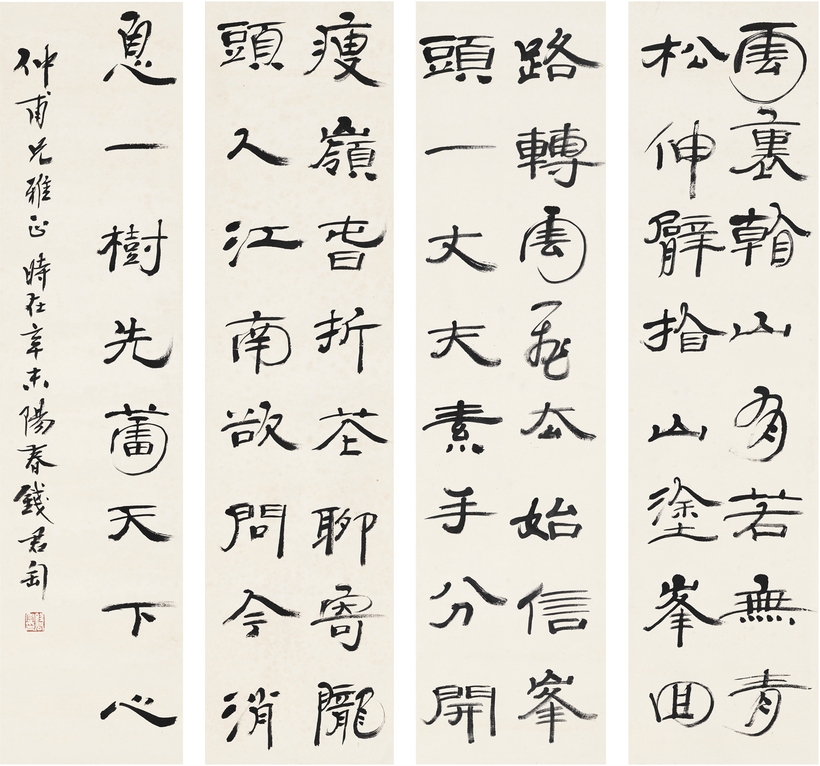 雲裏看山有若無青
松伸臂指山塗峯回
路轉雲飛去始信峯
頭一丈夫素手分開
瘦嶺春折花聊寄隴
頭人江南欲問今消
息一樹先春天下心
仲甫兄雅正時在辛未陽春錢君匋